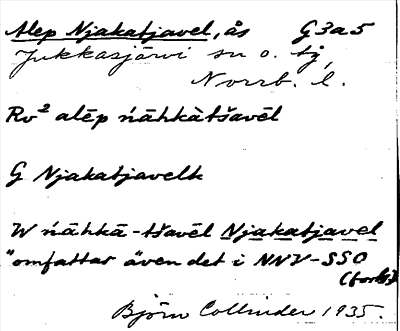 Alep Njakatjavel, ås G3a5
Jukkasjärvi sn o. tg,
Norrb. l.
Rv² alēp ńāhkàtšavēl
G Njakatjavelk
W ńāhkā-tšavēl Njakatjavel
"omfattar även det i NNV-SSO
(forts.)
Björn Collinder 1935.